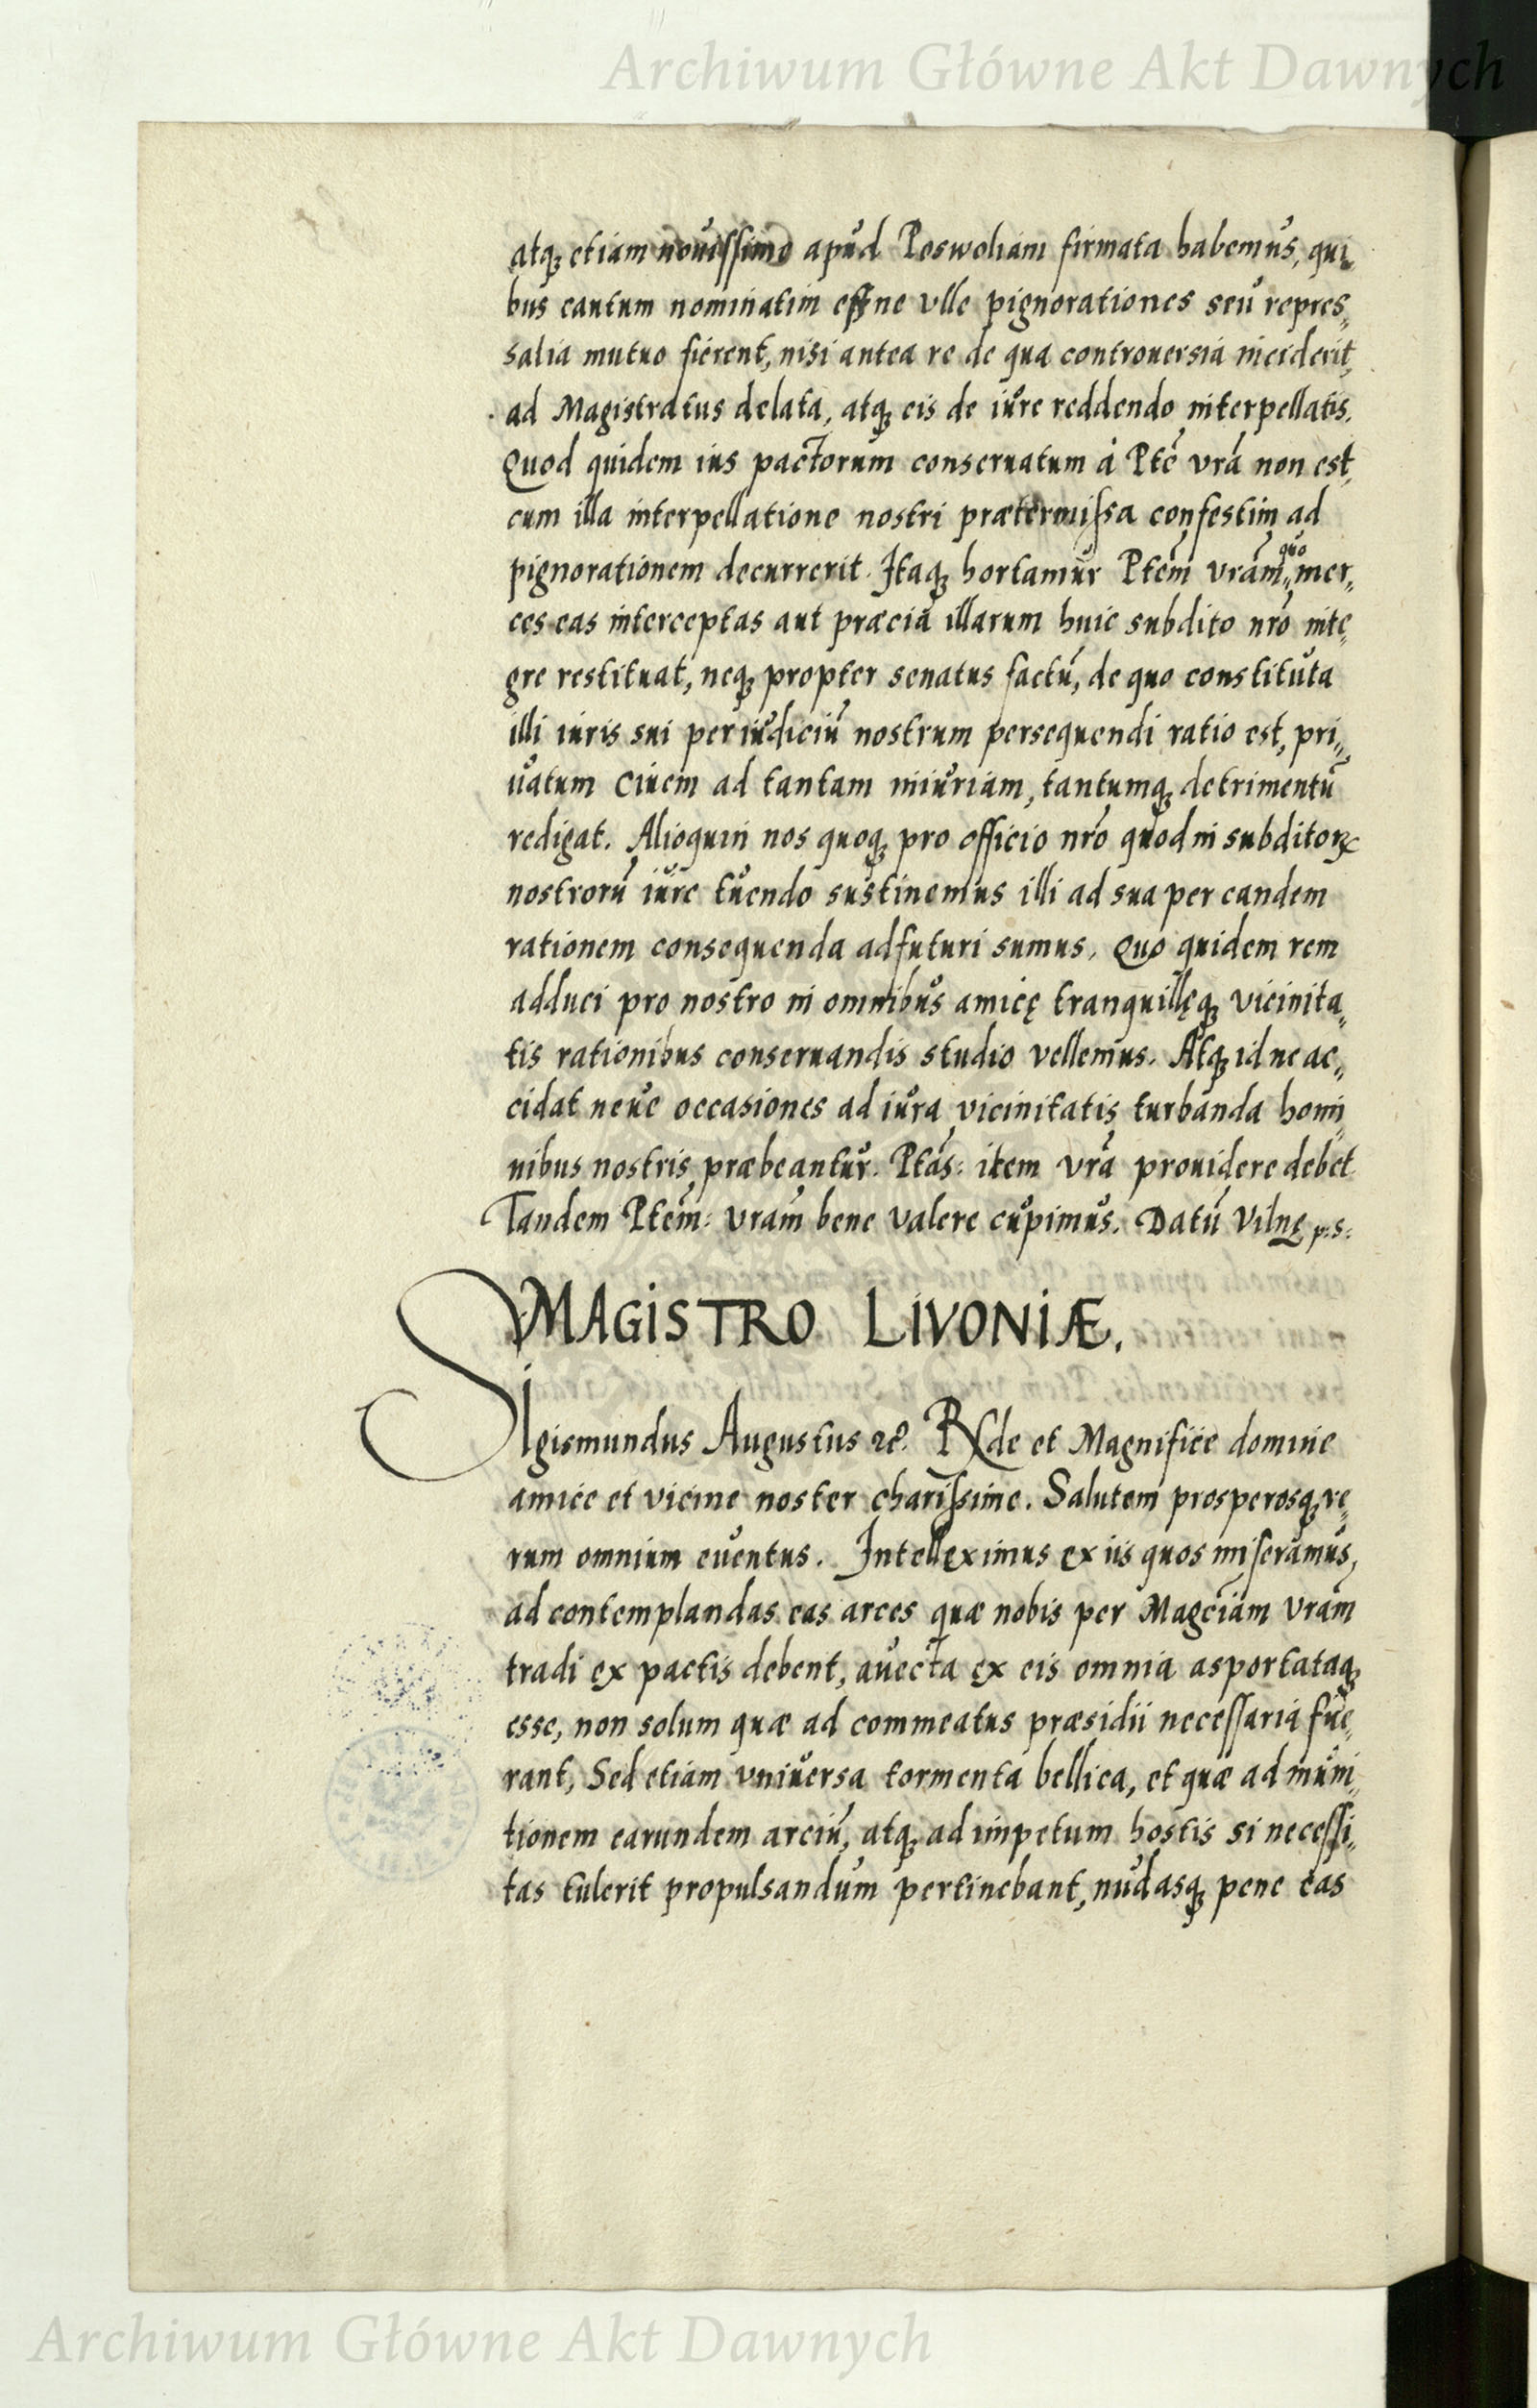 Archiwum Główne Akt Dawnych
atq; etiam nouissime apud Poswoliam firmata habemus, qui„
bus cautum nominatim esse ne vlle pignorationes seu repres„
salia mutuo fierent, nisi antea re de qua controuersia inciderit,
ad Magistratus delata, atq; eis de iure reddendo interpellatis.
Quod quidem ius pactorum conseruatum à Ptē vrā non est,
cum illa interpellatione nostri prætermissa confestim ad
pignorationem decurrerit. Itaq; hortamur Ptēm vrām„ quo mer„
ces eas interceptas aut præcia illarum huic subdito nrō inte„
gre restituat, neq; propter senatus factū, de quo constituta
illi iuris sui per iudiciū nostrum persequendi ratio est, pri„
uatum Ciuem ad tantam iniuriam, tantumq; detrimentū
redigat. Alioquin nos quoq; pro officio nrō quod in subditoꝝ
nostrorū iure tuendo sustinemus illi ad sua per eandem
rationem consequenda adfuturi sumus. Quo quidem rem
adduci pro nostro in omnibus amicę tranquillęq; vicinita„
tis rationibus conseruandis studio vellemus. Atq; id ne ac„
cidat neue occasiones ad iura vicinitatis turbanda homi„
nibus nostris præbeantur. Ptās: item vrā prouidere debet
Tandem Ptēm: vrām bene valere cupimus. Datū Vilnę p:s:
MAGISTRO LIVONIÆ.
Sigismundus Augustus &c. Rde et Magnifice domine
amice et vicine noster charissime. Salutem prosperosq; re„
rum omnium euentus. Intelleximus ex iis quos miseramus,
ad contemplandas eas arces quæ nobis per Magciām vrām
tradi ex pactis debent, auecta ex eis omnia asportataq;
esse, non solum quæ ad commeatus præsidii necessaria fue„
rant, Sed etiam vniuersa tormenta bellica, et quæ ad muni„
tionem earundem arciū, atq; ad impetum hostis si necessi„
tas tulerit propulsandum pertinebant, nudasq; pene eas
Archiwum Główne Akt Dawnych